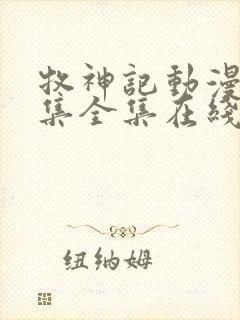 牧神記動漫
集全集在綫
纽纳姆